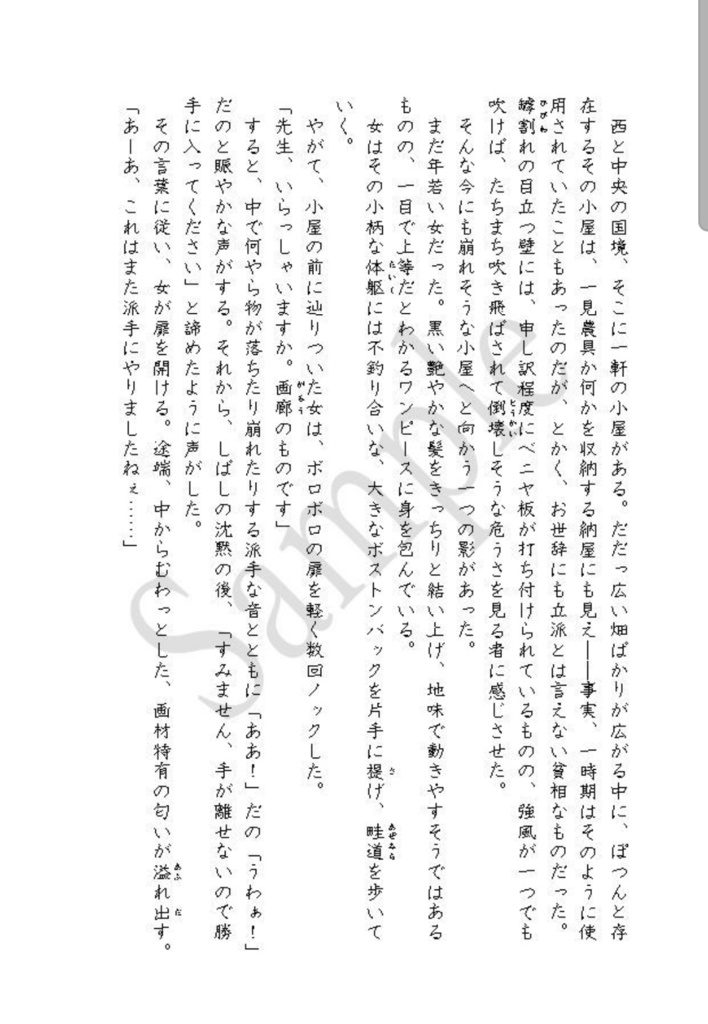 西と中央の国境、そこに一軒の小屋がある。だだっ広い畑ばかりが広がる中に、ぽつんと存
在するその小屋は、一見農具か何かを収納する納屋にも見え――事実、一時期はそのように使
用されていたこともあったのだが、とかく、お世辞にも立派とは言えない貧相なものだった。
罅割れの目立つ壁には、申し訳程度にベニヤ板が打ち付けられているものの、強風が一つでも
吹けば、たちまち吹き飛ばされて倒壊しそうな危うさを見る者に感じさせた。
そんな今にも崩れそうな小屋へと向かう一つの影があった。
まだ年若い女だった。黒い艶やかな髪をきっちりと結い上げ、地味で動きやすそうではある
ものの、一目で上等だとわかるワンピースに身を包んでいる。
女はその小柄な体躯には不釣り合いな、大きなボストンバックを片手に提げ、畦道を歩いて
いく。
やがて、小屋の前に辿りついた女は、ボロボロの扉を軽く数回ノックした。
「先生、いらっしゃいますか。画廊のものです」
すると、中で何やら物が落ちたり崩れたりする派手な音とともに「ああ！」だの「うわぁ！」
だのと賑やかな声がする。それから、しばしの沈黙の後、「すみません、手が離せないので勝
手に入ってください」と諦めたように声がした。
その言葉に従い、女が扉を開ける。途端、中からむわっとした、画材特有の匂いが溢れ出す。
「あーあ、これはまた派手にやりましたねぇ……」
Sample